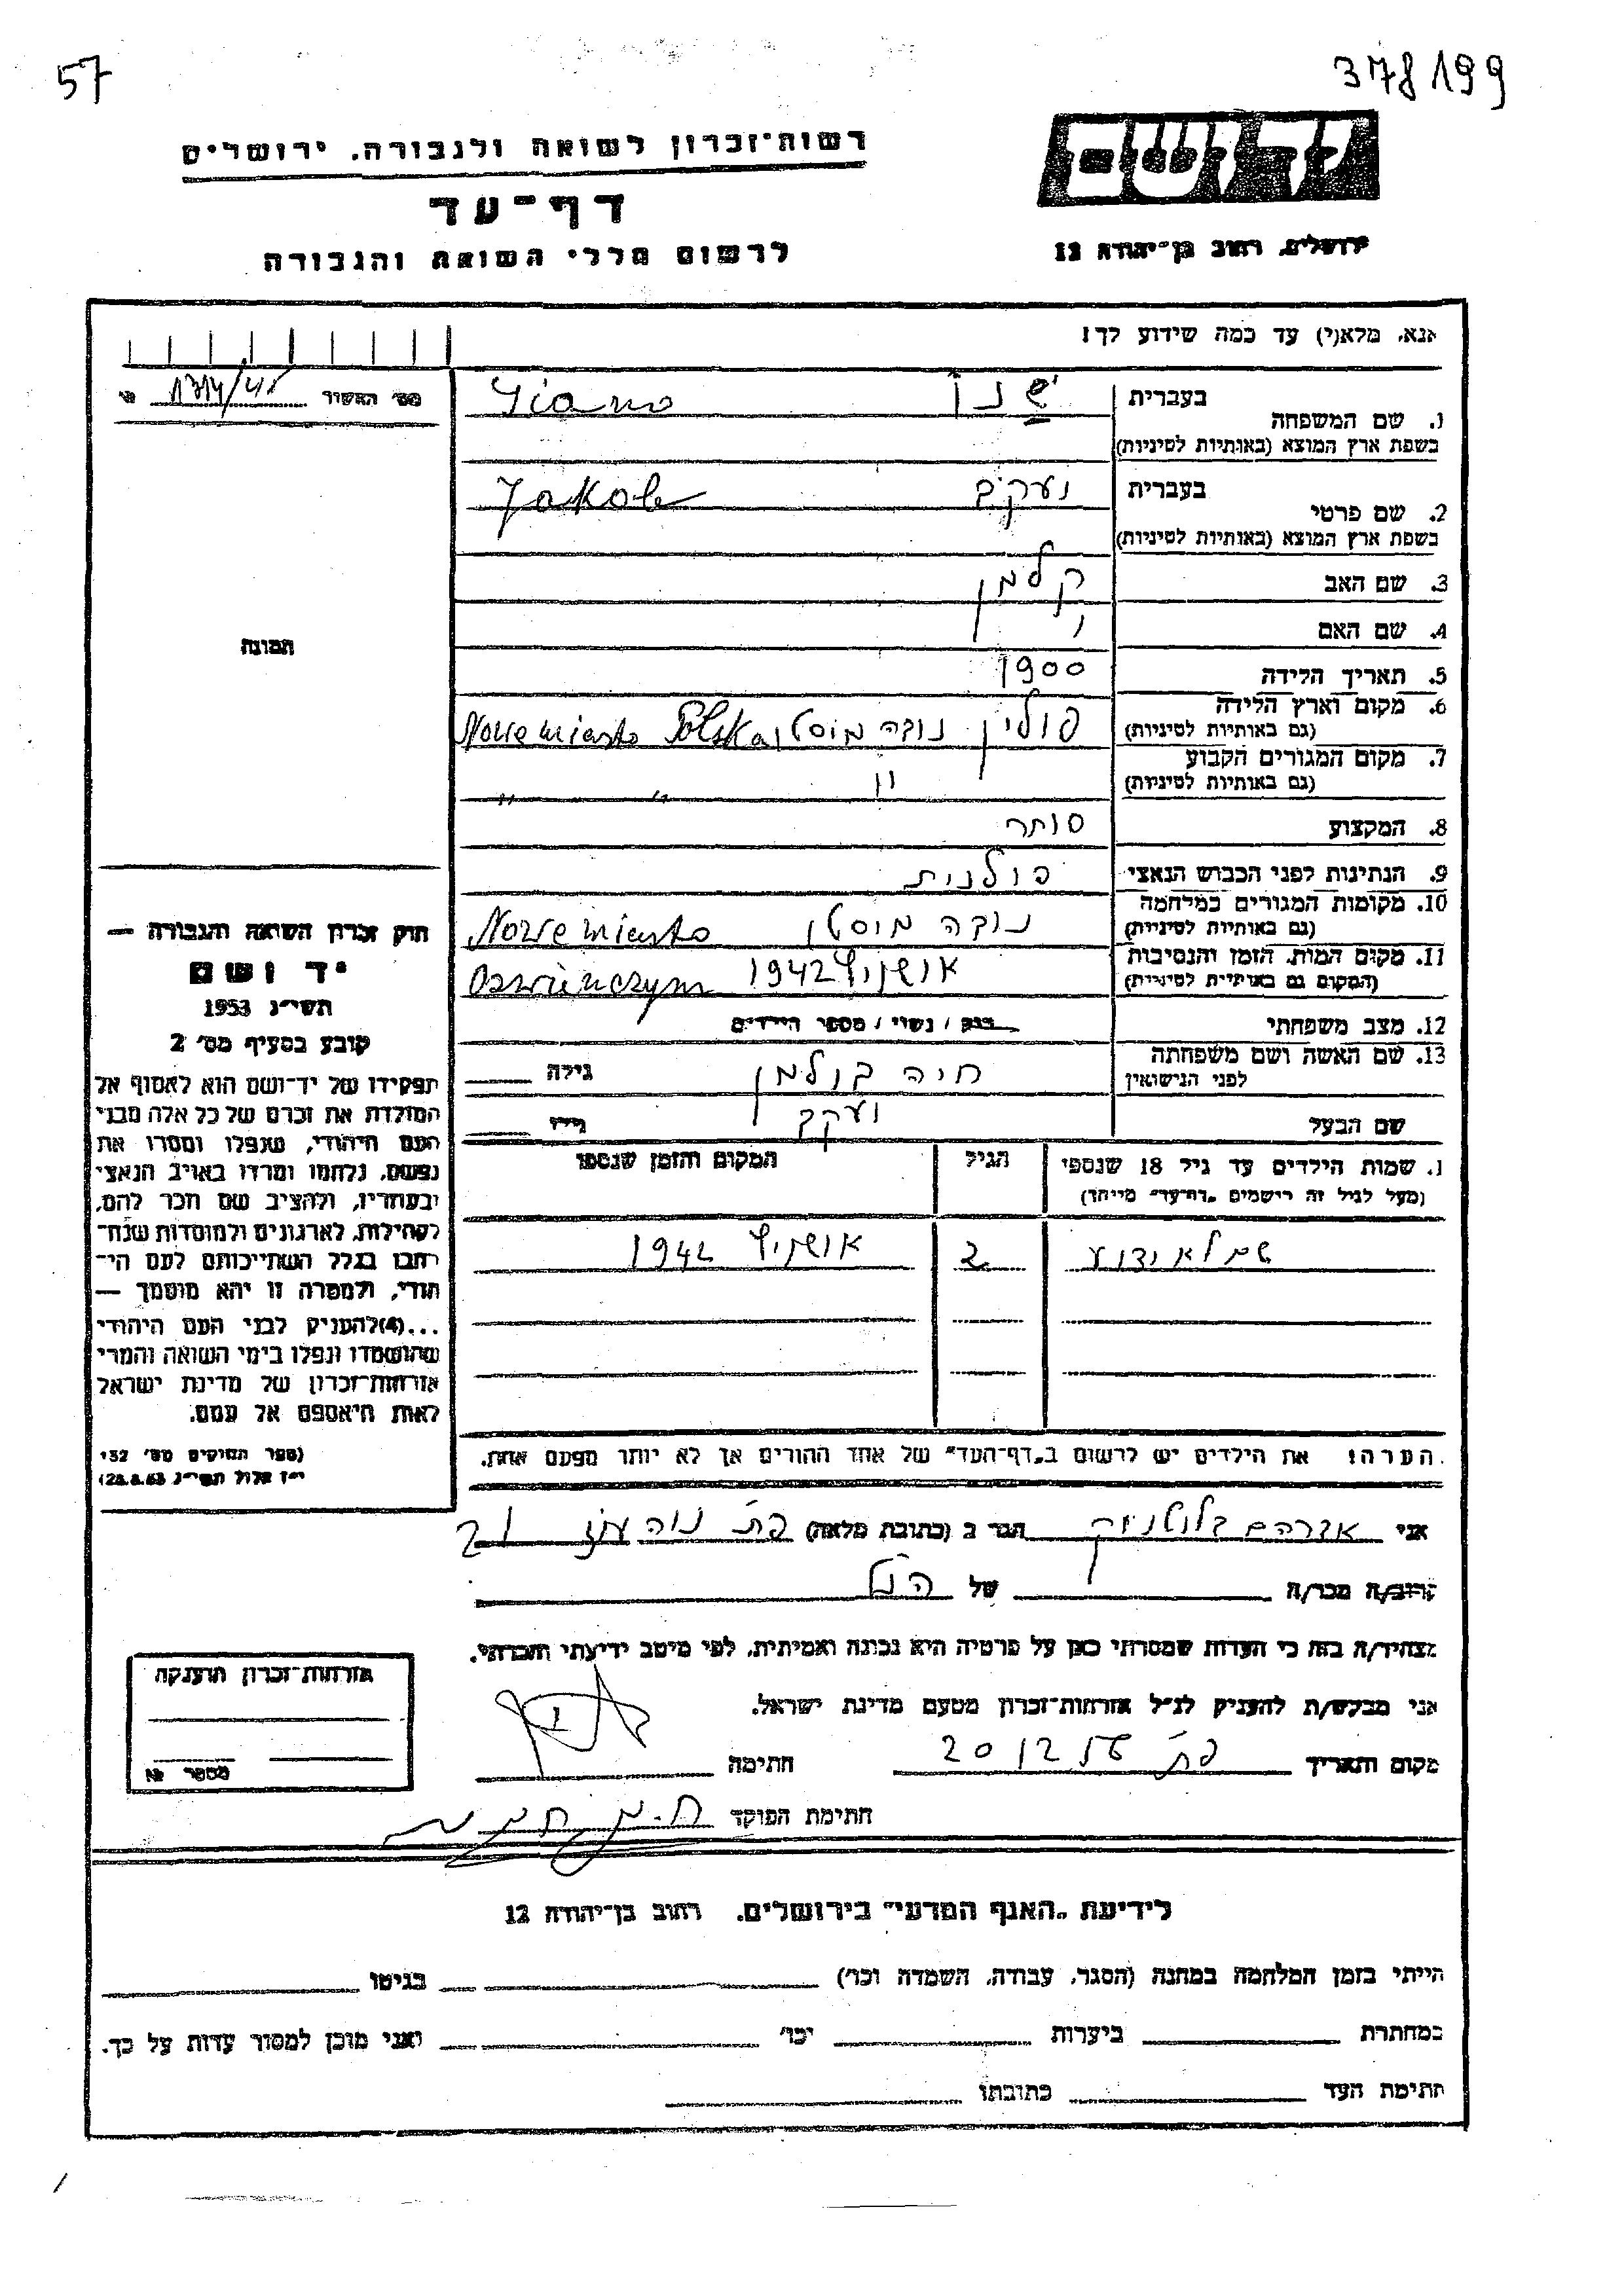 57
378199
יד ושם
רשות־זכרון לשואה ולגבורה. ירושלים
דף־עד
לרשום חללי השואה והגבורה
ירושלים. רחוב בן־יהודה 12
אנא. מלא(י) עד כמה שידוע לך!
מס' האשור
1. שם המשפחה
בעברית
Siano
בשפת ארץ המוצא (באותיות לטיניות)
2. שם פרטי
בעברית יעקב
Jakob
בשפת ארץ המוצא (באותיות לטיניות)
3. שם האב קלמן
4. שם האם
5. תאריך הלידה 1900
6. מקום וארץ הלידה פולין נובה מוסטו Nowe miasto Polska
(גם באותיות לטיניות)
7. מקום המגורים הקבוע " " "
(גם באותיות לטיניות)
8. המקצוע סוחר
9. הנתינות לפני הכבוש הנאצי פולנית
10. מקומות המגורים במלחמה נובה מוסטו Nowe miasto
(גם באותיות לטיניות)
11. מקום המות. הזמן והנסיבות אושויץ 1942 Oswienczym
(המקום גם באותיות לטיניות)
12. מצב משפחתי רווק / נשוי / מספר הילדים
13. שם האשה ושם משפחתה
לפני הנישואין חיה גילה
שם הבעל יעקב גילו
1. שמות הילדים עד גיל 18 שנספו הגיל המקום והזמן שנספו
(מעל לגיל זה רישמים „דף־עד" מייחד)
שם לא ידוע 2 אושויץ 1942
הערה! את הילדים יש לרשום ב„דף־העד" של אחד ההורים אך לא יותר מפעם אחת.
תמונה
חוק זכרון השואה והגבורה —
יד ושם
תשי"ג 1953
קובע בסעיף מס' 2
תפקידו של יד־ושם הוא לאסוף אל
המולדת את זכרם של כל אלה מבני
העם היהודי, שנפלו ומסרו את
נפשם, נלחמו ומרדו באויב הנאצי
ובעוזריו, ולהציב שם וזכר להם,
לקהילות, לארגונים ולמוסדות שנח־
רבו בגלל השתייכותם לעם הי־
הודי, ולמטרה זו יהא מוסמך —
...(4)להעניק לבני העם היהודי
שהושמדו ונפלו בימי השואה והמרי
אזרחות־זכרון של מדינת ישראל
לאות היאספם אל עמם.
(ספר החוקים מס' 132
י"ז אלול תשי"ג 28.8.53)
אני אברהם הגר ב (כתובת מלאה) פ"ת נוה עוז 21
קרוב/ה מכר/ה של הנ"ל
מצהיר/ה בזה כי העדות שמסרתי כאן על פרטיה היא נכונה ואמיתית. לפי מיטב ידיעתי והכרתי.
אני מבקש/ת להעניק לנ"ל אזרחות־זכרון מטעם מדינת ישראל.
מקום ותאריך פ"ת חתימה
חתימת הפוקד
אזרחות־זכרון הוענקה
מספר №
לידיעת „האגף המדעי" בירושלים. רחוב בן־יהודה 12
הייתי בזמן המלחמה במחנה (הסגר, עבודה, השמדה וכו') בגיטו
במחתרת ביערות וכו' ואני מוכן למסור עדות על כך.
חתימת העד כתובתו